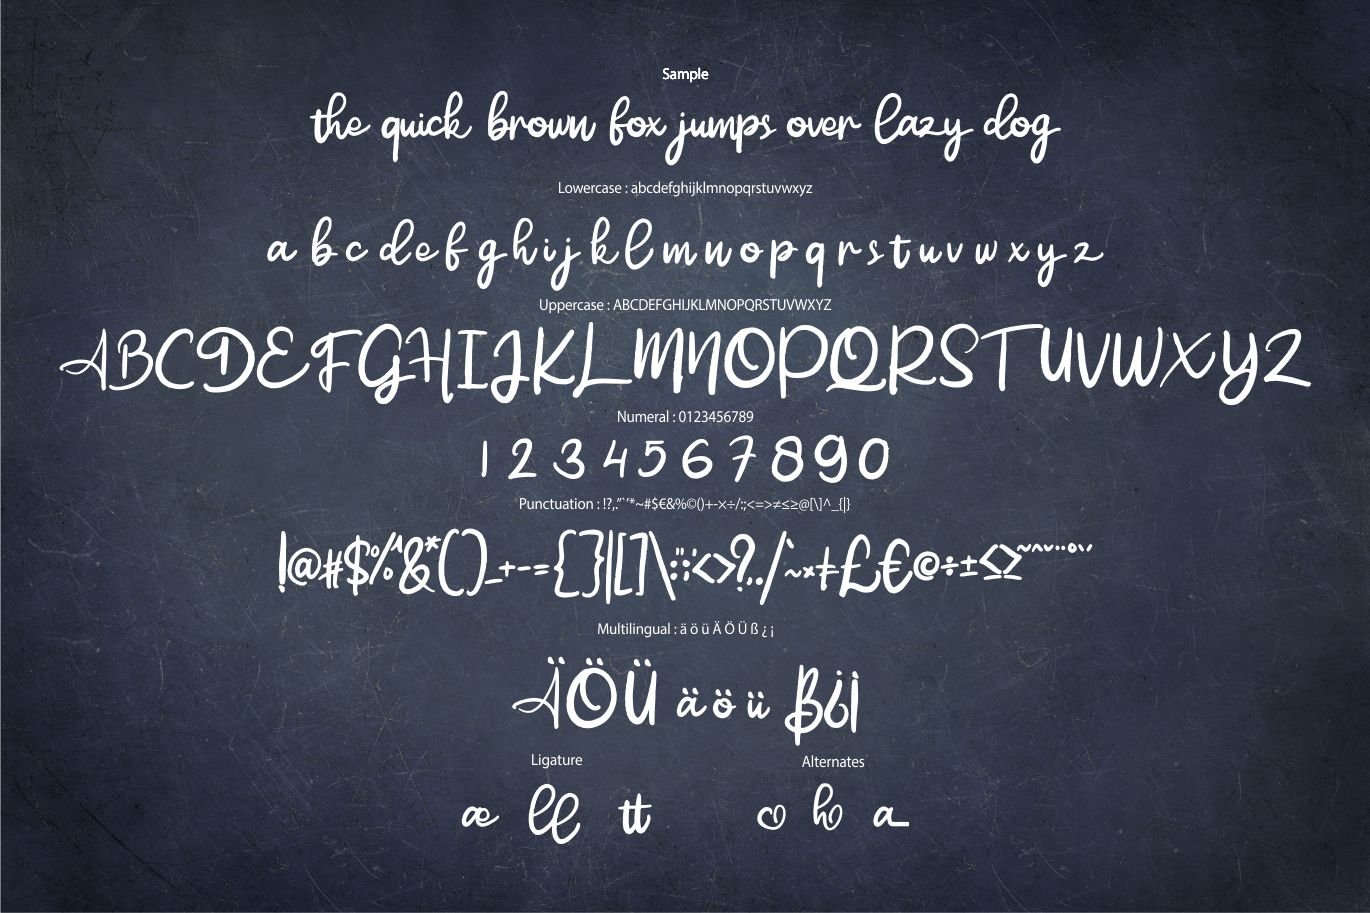 Sample
the quick brown fox jumps over lazy dog
Lowercase : abcdefghijklmnopqrstuvwxyz
a b c d e f g h i j k l m n o p q r s t u v w x y z
Uppercase : ABCDEFGHIJKLMNOPQRSTUVWXYZ
ABCDEFGHIJKLMNOPQRSTUVWXYZ
Numeral : 0123456789
1 2 3 4 5 6 7 8 9 0
Punctuation : !?,."`'*~#$€&%©()+-×÷/:;<=>≠≤≥@[\]^_{|}
!@#$%^&*()_+-={}|[]\":;'<>?,./`~×‡£€©÷±≤≥~^˘¨°`´
Multilingual : ä ö ü Ä Ö Ü ß ¿ ¡
ÄÖÜ äöü ß¿¡
Ligature Alternates
æ ll tt c h a